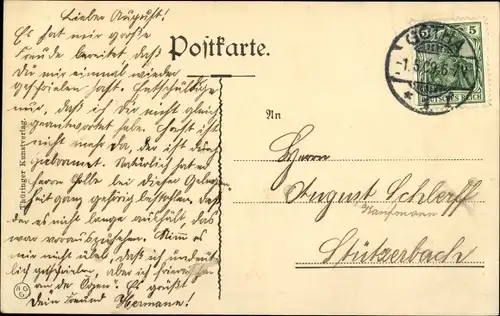 Lieber August!
Es hat mir große
Freude bereitet daß
Du mir einmal wieder
geschrieben hast. Entschuldige
nur, daß ich Dir nicht gleich
geantwortet habe. Hast ist
nicht mehr da, der ist durch
gebrannt. Natürlich hat er
Herrn Holle bei dieser Gelegen-
heit ganz gehörig bestohlen, daß
der es nicht lange aushält, das
war vorauszusehen. Nimm es
mir nicht übel, daß ich undeut-
lich geschrieben, aber ich
an die Ogen. Es grüßt
Dein Freund Hermann!
Thüringer Kunstverlag.
Postkarte.
GOTHA
5
DEUTSCHES REICH
An
Herrn
August Schlerff
Kaufmann
Stützerbach